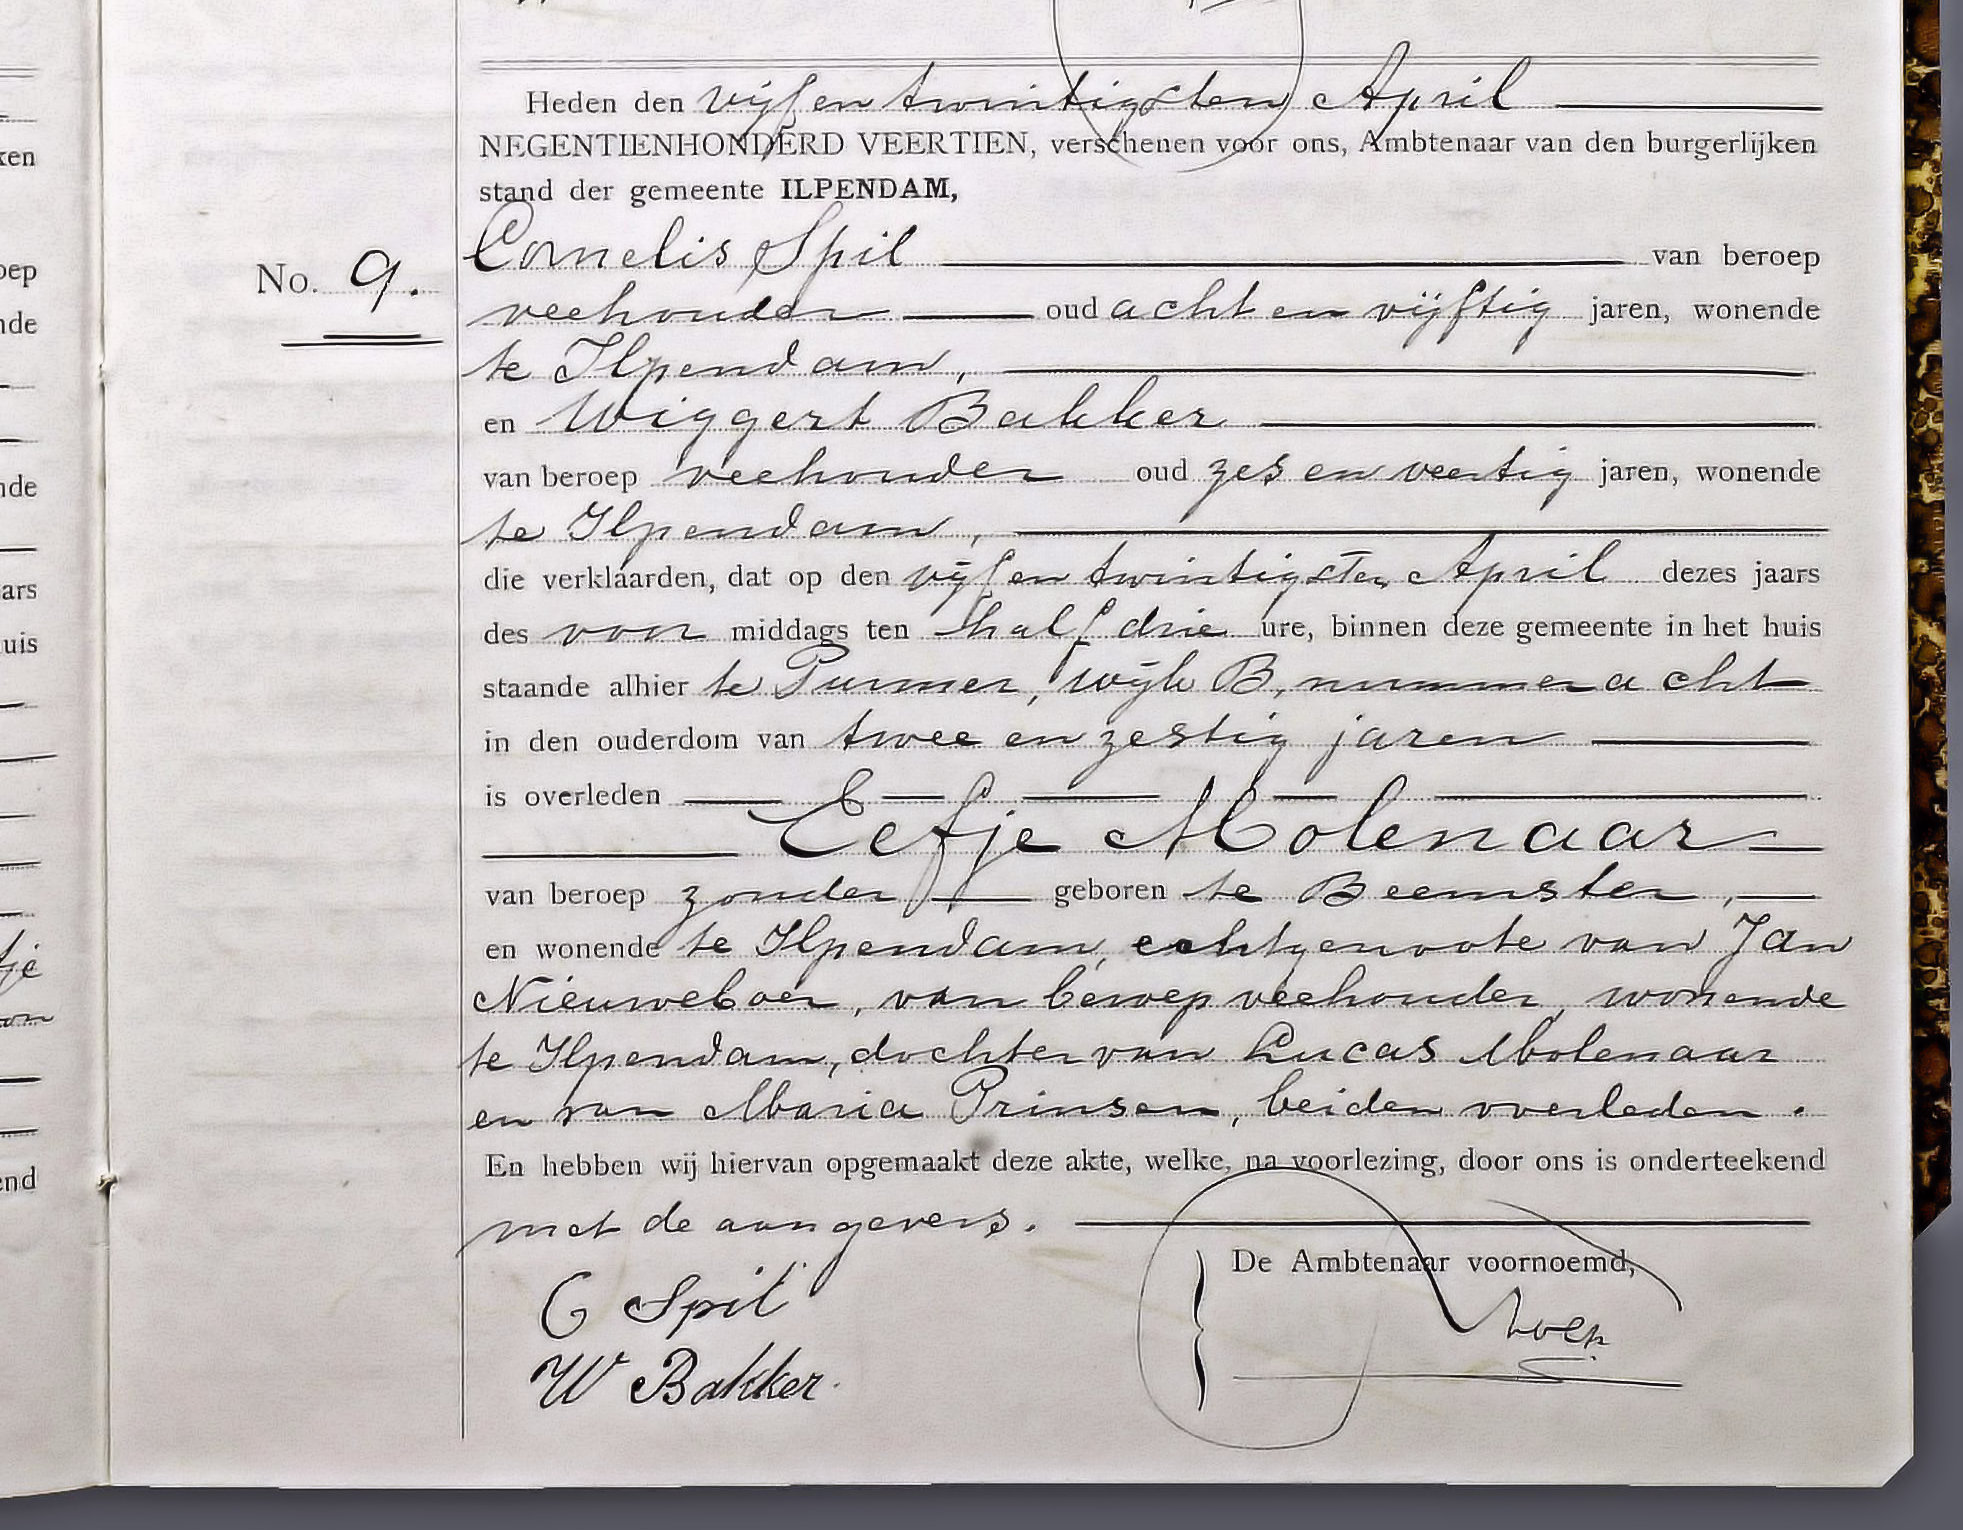 Heden den vijf en twintigsten April
NEGENTIENHONDERD VEERTIEN, verschenen voor ons, Ambtenaar van den burgerlijken
stand der gemeente ILPENDAM,
No. 9.
Cornelis Spil van beroep
veehouder oud acht en vijftig jaren, wonende
te Ilpendam,
en Wiggert Bakker
van beroep veehouder oud zes en veertig jaren, wonende
te Ilpendam,
die verklaarden, dat op den vijf en twintigsten April dezes jaars
des voor middags ten half drie ure, binnen deze gemeente in het huis
staande alhier te Purmer, wijk B, nummer acht
in den ouderdom van twee en zestig jaren
is overleden
Eefje Molenaar
van beroep zonder geboren te Beemster,
en wonende te Ilpendam, echtgenoote van Jan
Nieuweboer, van beroep veehouder, wonende
te Ilpendam, dochter van Lucas Molenaar
en van Maria Prinsen, beiden overleden.
En hebben wij hiervan opgemaakt deze akte, welke, na voorlezing, door ons is onderteekend
met de aangevers.
De Ambtenaar voornoemd,
C Spil
W Bakker.